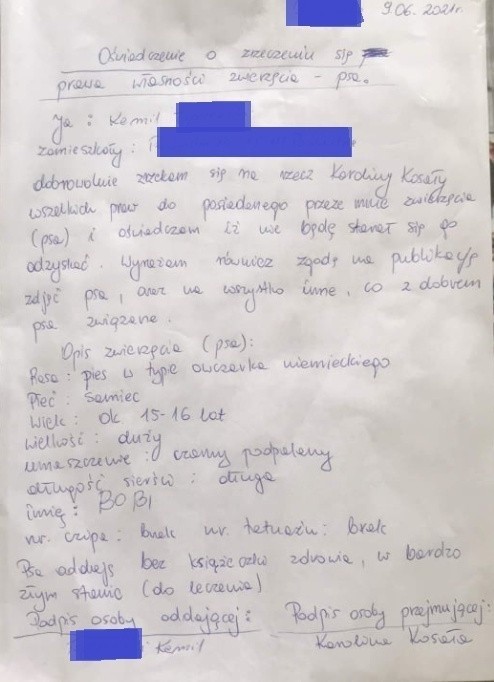 9.06.2021r.
Oświadczenie o zrzeczeniu się
prawa własności zwierzęcia - psa.
Ja : Kamil
zamieszkały :
dobrowolnie zrzekam się na rzecz Karoliny Kosały
wszelkich praw do posiadanego przeze mnie zwierzęcia
(psa) i oświadczam iż nie będę starał się go
odzyskać. Wyrażam również zgodę na publikację
zdjęć psa, oraz na wszystko inne, co z dobrem
psa związane.
Opis zwierzęcia (psa):
Rasa : pies w typie owczarka niemieckiego
Płeć : Samiec
Wiek : ok. 15-16 lat
wielkość : duży
umaszczenie : czarny podpalany
długość sierści : długa
imię : BOBI
nr. czipa : brak nr. tatuażu : brak
Psa oddaję bez książeczki zdrowia, w bardzo
złym stanie (do leczenia)
Podpis osoby oddającej : Podpis osoby przejmującej:
Kamil Karolina Kosała